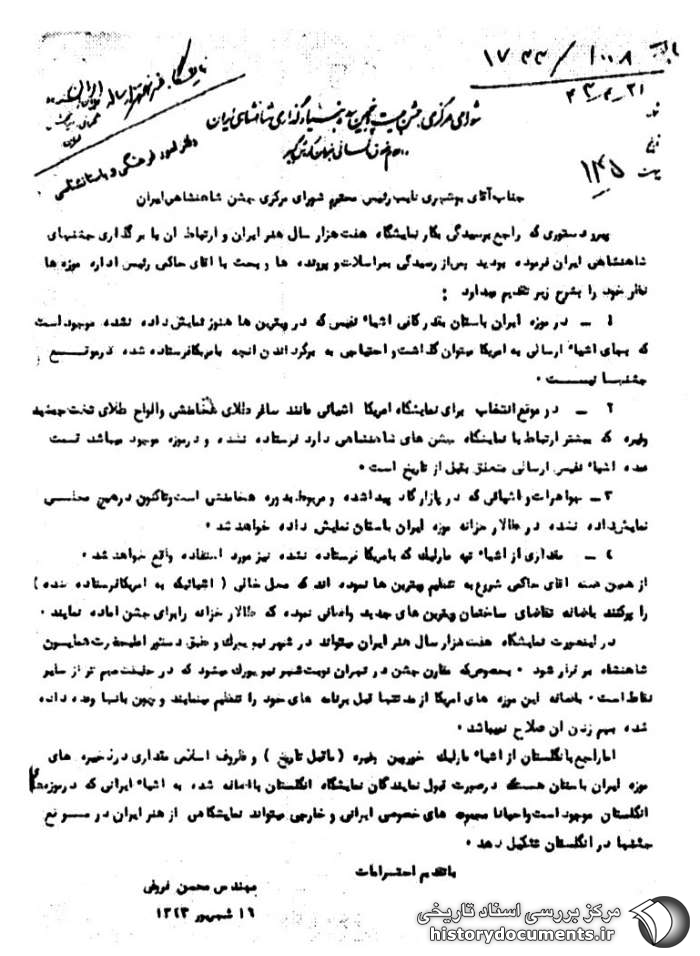 ۱۷۴۴/۱۰۰۸
۴۳-۴-۲۱
۱۴۵
نمایشگاه هفت هزار ساله ایران
شورای مرکزی جشن دو هزار و پانصدمین سال بنیاد گذاری شاهنشاهی ایران
دفتر امور فرهنگی و باستانشناسی
جناب آقای بوشهری نایب رئیس محترم شورای مرکزی جشن شاهنشاهی ایران
پیرو دستوری که راجع برسیدگی بکار نمایشگاه هفت هزار سال هنر ایران و ارتباط ان با برگذاری جشنهای
شاهنشاهی ایران فرموده بودید پس از رسیدگی بمراسلات و پرونده ها و بحث با اقای حاکمی رئیس اداره موزه ها
نظر خود را بشرح زیر تقدیم میدارد :
۱ - در موزه ایران باستان بقدر کافی اشیاء نفیس که در ویترین ها هنوز نمایش داده نشده موجود است
که بجای اشیاء ارسالی به امریکا میتوان گذاشت و احتیاجی به برگرداندن انچه بامریکا فرستاده شده در موقع
جشنها نیست .
۲ - در موقع انتخاب برای نمایشگاه امریکا اشیائی مانند ساغر طلای هخامنشی و الواح طلای تخت جمشید
وغیره که بیشتر ارتباط با نمایشگاه جشن های شاهنشاهی دارد فرستاده نشده و درموزه موجود میباشد قسمت
عمده اشیاء نفیس ارسالی متعلق بقبل از تاریخ است .
۳ - جواهرات و اشیائی که در پازارگاد پیدا شده و مربوط بدوره هخامنشی است و تاکنون در هیچ مجلسی
نمایش داده نشده در طالار خزانه موزه ایران باستان نمایش داده خواهد شد .
۴ - مقداری از اشیاء تپه مارلیک که بامریکا فرستاده نشده نیز مورد استفاده واقع خواهد شد .
از همین هفته اقای حاکمی شروع به تنظیم ویترین ها نموده اند که محل خالی ( اشیائیکه به امریکا فرستاده شده )
را پرکنند باضافه تقاضای ساختمان ویترین های جدید واضافی نموده که طالار خزانه را برای جشن اماده نمایند .
در اینصورت نمایشگاه هفت هزار سال هنر ایران میتواند در شهر نیویورک و طبق دستور اعلیحضرت همایون
شاهنشاه برقرار شود . بخصوص که مقارن جشن در تهران نوبت شهر نیویورک میشود که در حقیقت مهم تر از سایر
نقاط است . باضافه این موزه های امریکا از مدتها قبل برنامه های خود را تنظیم مینمایند و چون بانها وعده داده
شده بهم زدن ان صلاح نمیباشد .
اما راجع بانگلستان از اشیاء مارلیک خوروین وغیره ( ماقبل تاریخ ) و ظروف اسلامی مقداری در ذخیره های
موزه ایران باستان هست که درصورت قبول نمایندگان نمایشگاه انگلستان بااضافه شده به اشیاء ایرانی که در موزه های
انگلستان موجود است و احیانا مجموعه های خصوصی ایرانی و خارجی میتواند نمایشگاهی از هنر ایران در موقع
جشنها در انگلستان تشکیل دهد .
با تقدیم احترامات
مهندس محسن فروغی
۱۶ شهریور ۱۳۴۳
مرکز بررسی اسناد تاریخی
historydocuments.ir